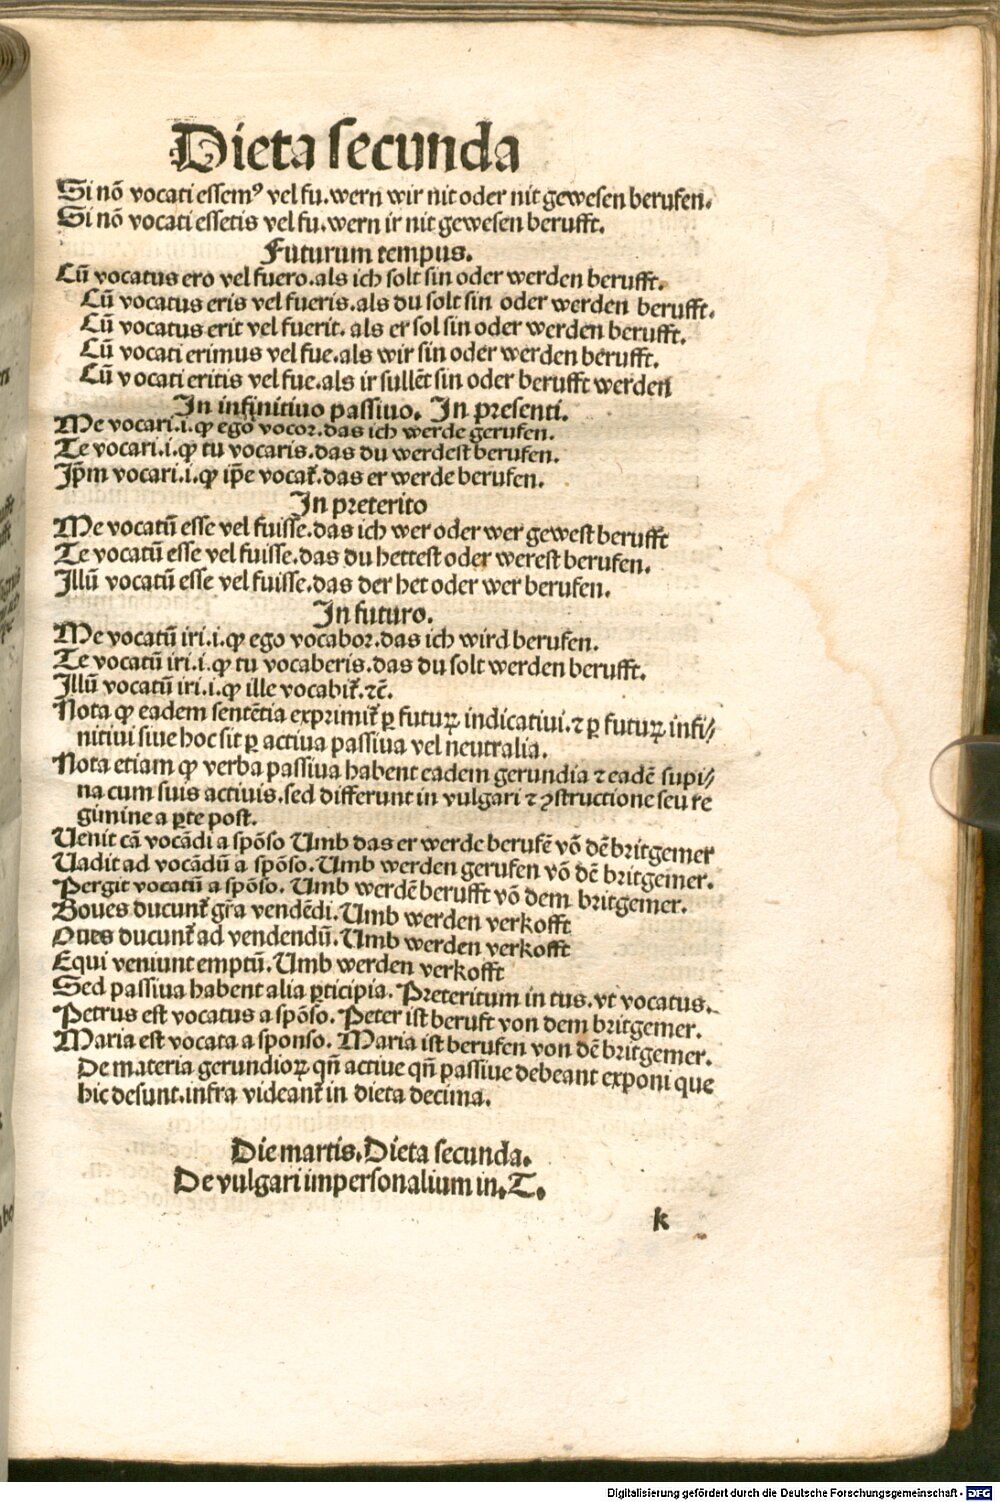 Dieta secunda
Si nō vocati essemꝰ vel fu.wern wir nit oder nit gewesen berufen.
Si nō vocati essetis vel fu.wern ir nit gewesen berufft.
Futurum tempus.
Cū vocatus ero vel fuero.als ich solt sin oder werden berufft.
Cū vocatus eris vel fueris.als du solt sin oder werden berufft.
Cū vocatus erit vel fuerit. als er sol sin oder werden berufft.
Cū vocati erimus vel fue.als wir sin oder werden berufft.
Cū vocati eritis vel fue.als ir sullēt sin oder berufft werden
In infinitiuo passiuo. In presenti.
Me vocari.i.ꝙ ego vocor.das ich werde gerufen.
Te vocari.i.ꝙ tu vocaris.das du werdest berufen.
Ip̄m vocari.i.ꝙ ip̄e vocat᷑.das er werde berufen.
In preterito
Me vocatū esse vel fuisse.das ich wer oder wer gewest berufft
Te vocatū esse vel fuisse.das du hettest oder werest berufen.
Illū vocatū esse vel fuisse.das der het oder wer berufen.
In futuro.
Me vocatū iri.i.ꝙ ego vocabor.das ich wird berufen.
Te vocatū iri.i.ꝙ tu vocaberis.das du solt werden berufft.
Illū vocatū iri.i.ꝙ ille vocabit᷑.⁊c̄.
Nota ꝙ eadem sentētia exprimit᷑ ꝑ futuꝝ indicatiui.⁊ ꝑ futuꝝ infi⸗
nitiui siue hoc sit ꝑ actiua passiua vel neutralia.
Nota etiam ꝙ verba passiua habent eadem gerundia ⁊ eadē supi⸗
na cum suis actiuis.sed differunt in vulgari ⁊ ꝯstructione seu re
gimine a ꝑte post.
Uenit cā vocādi a spōso Umb das er werde berufē vō dē britgemer
Uadit ad vocādū a spōso.Umb werden gerufen vō dē britgemer.
Pergit vocatū a spōso. Umb werdē berufft vō dem britgemer.
Boues ducunt᷑ gr̄a vendēdi.Umb werden verkofft
Oues ducunt᷑ ad vendendū.Umb werden verkofft
Equi veniunt emptū.Umb werden verkofft
Sed passiua habent alia ꝑticipia. Preteritum in tus.vt vocatus.
Petrus est vocatus a spōso. Peter ist beruft von dem britgemer.
Maria est vocata a sponso. Maria ist berufen von dē britgemer.
De materia gerundioꝝ qn̄ actiue qn̄ passiue debeant exponi que
hic desunt.infra videant᷑ in dieta decima.
Die martis.Dieta secunda.
De vulgari impersonalium in.T.
k
Digitalisierung gefördert durch die Deutsche Forschungsgemeinschaft - DFG